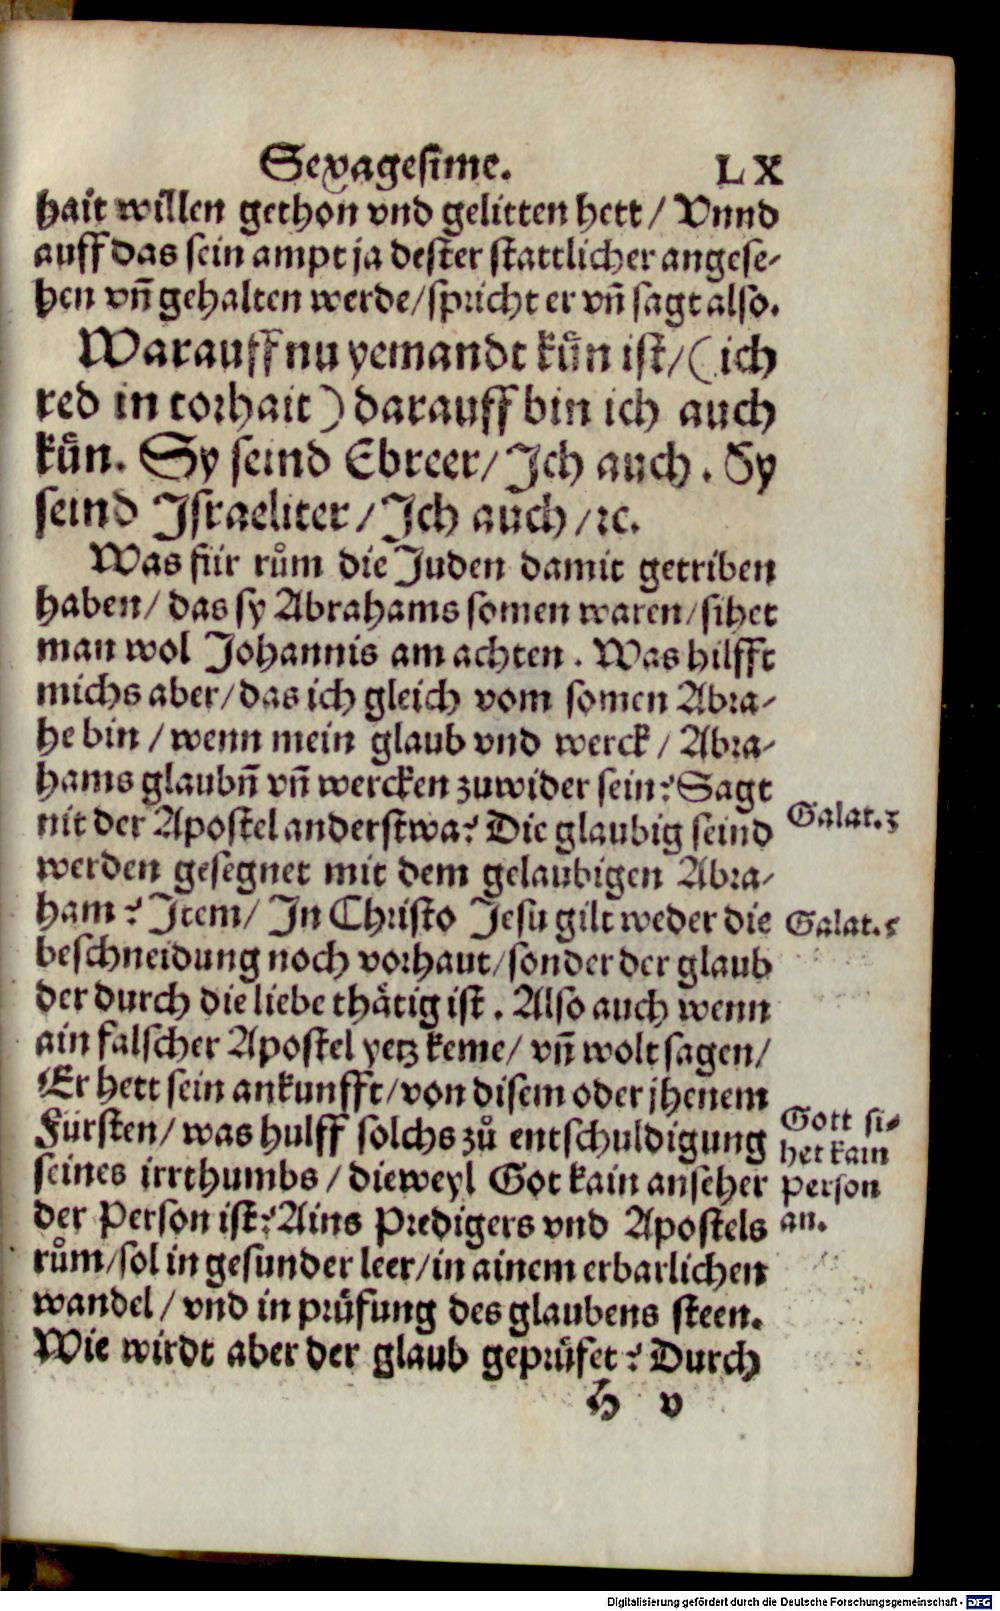 Sexagesime. LX
hait willen gethon vnd gelitten hett / Vnnd
auff das sein ampt ja dester stattlicher angese-
hen vñ gehalten werde / spricht er vñ sagt also.
Warauff nu yemandt kuͤn ist / ( ich
red in torhait ) darauff bin ich auch
kuͤn. Sy seind Ebreer / Ich auch . Sy
seind Israeliter / Ich auch / ꝛc.
Was für rům die Juden damit getriben
haben / das sy Abrahams somen waren / sihet
man wol Johannis am achten . Was hilfft
michs aber / das ich gleich vom somen Abra-
he bin / wenn mein glaub vnd werck / Abra-
hams glaubñ vñ wercken zuwider sein? Sagt
nit der Apostel anderstwa? Die glaubig seind
Galat.3
werden gesegnet mit dem gelaubigen Abra-
ham? Item / In Christo Jesu gilt weder die
Galat.5
beschneidung noch vorhaut / sonder der glaub
der durch die liebe thaͤtig ist . Also auch wenn
ain falscher Apostel yetz keme / vñ wolt sagen /
Er hett sein ankunfft / von disem oder jhenem
Fürsten / was hulff solchs zů entschuldigung
seines irrthumbs / dieweyl Got kain anseher
der Person ist? Ains Predigers vnd Apostels
Gott si-
het kain
Person
an.
rům / sol in gesunder leer / in ainem erbarlichen
wandel / vnd in pruͤfung des glaubens steen.
Wie wirdt aber der glaub gepruͤfet? Durch
H v
Digitalisierung gefördert durch die Deutsche Forschungsgemeinschaft - DFG